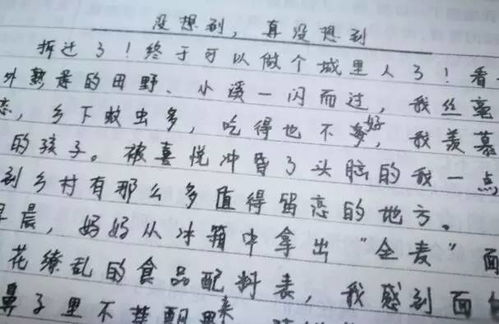 没想到，真没想到
拆迁了！终于可以做个城里人了！看
外熟悉的田野、小溪一闪而过，我丝毫
恋，乡下蚊虫多，吃得也不好，我羡慕
的孩子。被喜悦冲昏了头脑的我一点
到乡村有那么多值得留恋的地方。
早晨，妈妈从冰箱中拿出“全麦”面
花缭乱的食品配料表，我感到面
鼻子里不禁酸来